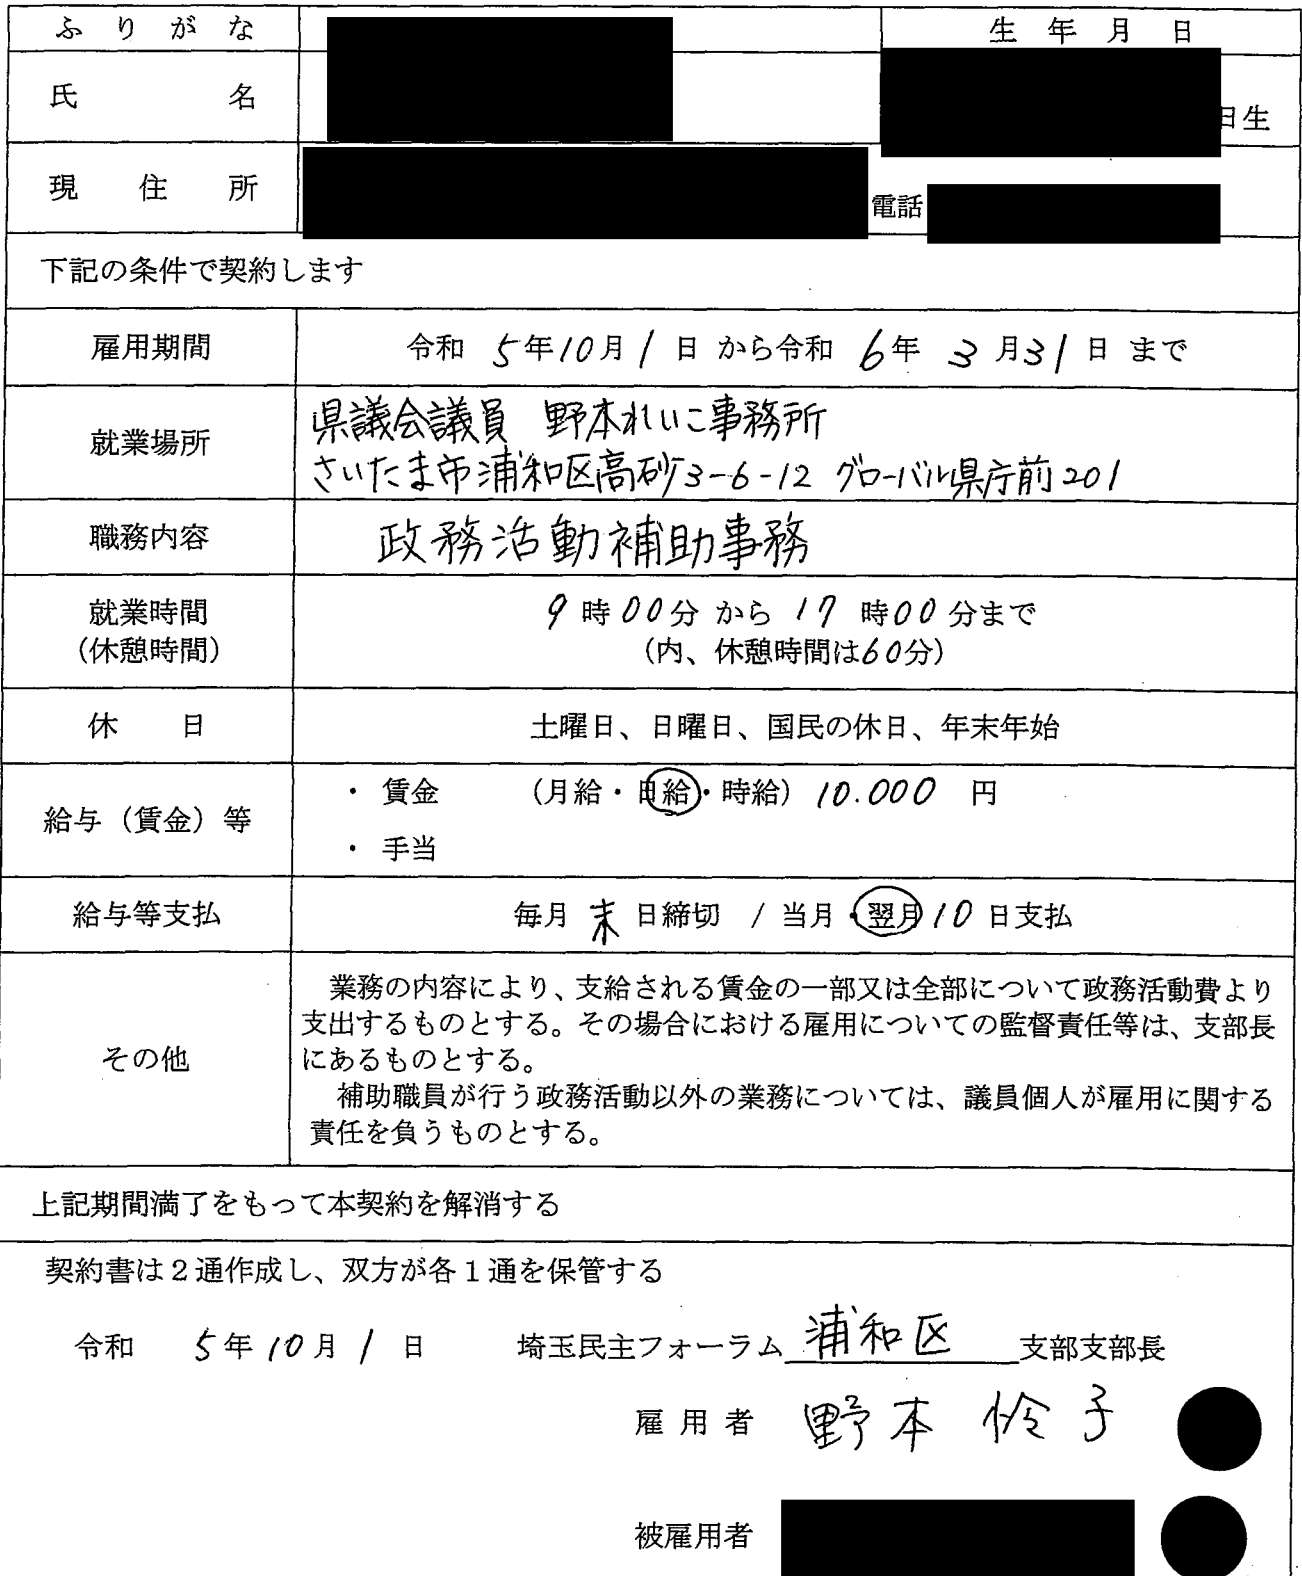 ふりがな
生年月日
氏名
日生
現住所
電話
下記の条件で契約します
雇用期間
令和 5年10月1日 から令和 6年 3月31日 まで
就業場所
県議会議員 野本れいこ事務所
さいたま市浦和区高砂3-6-12 グローバル県庁前201
職務内容
政務活動補助事務
就業時間
(休憩時間)
9時00分 から 17時00分まで
(内、休憩時間は60分)
休日
土曜日、日曜日、国民の休日、年末年始
給与(賃金)等
・ 賃金 (月給・日給・時給) 10.000 円
・ 手当
給与等支払
毎月 末 日締切 / 当月・翌月 10 日支払
その他
業務の内容により、支給される賃金の一部又は全部について政務活動費より
支出するものとする。その場合における雇用についての監督責任等は、支部長
にあるものとする。
補助職員が行う政務活動以外の業務については、議員個人が雇用に関する
責任を負うものとする。
上記期間満了をもって本契約を解消する
契約書は2通作成し、双方が各1通を保管する
令和 5年10月1日 埼玉民主フォーラム 浦和区 支部支部長
雇用者 野本 怜子
被雇用者